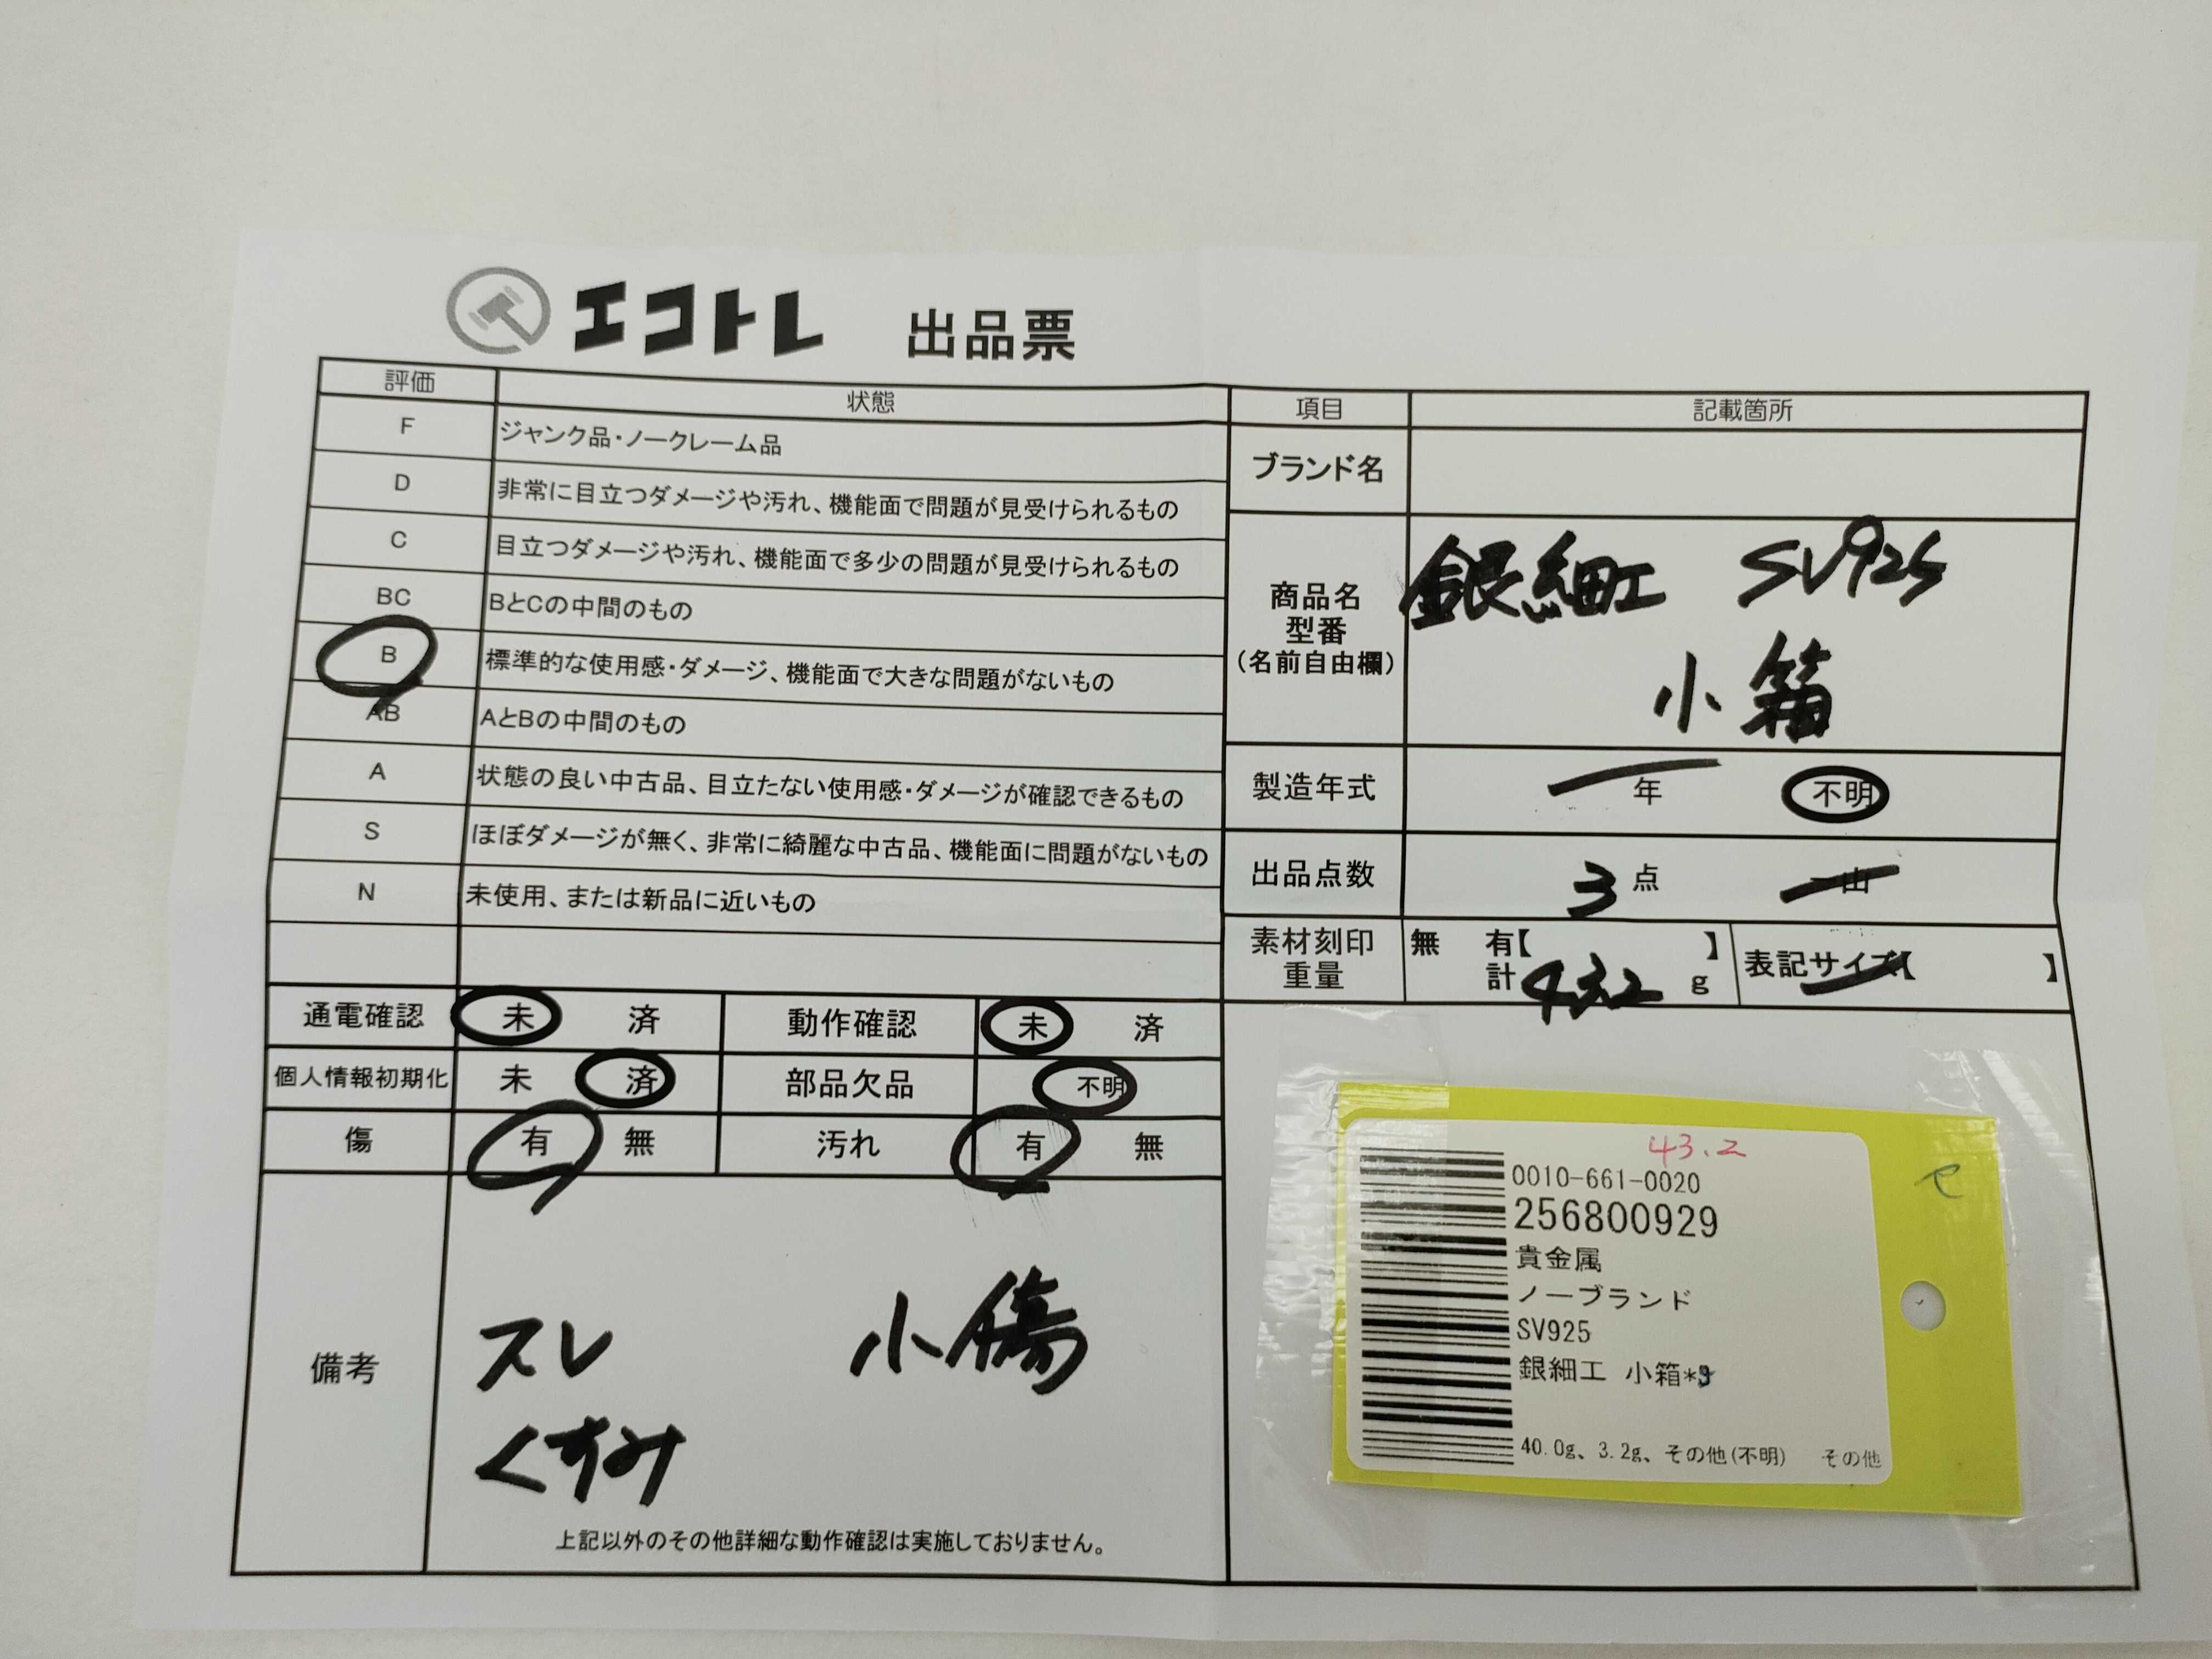 エコトレ 出品票
評価 状態
F ジャンク品・ノークレーム品
D 非常に目立つダメージや汚れ、機能面で問題が見受けられるもの
C 目立つダメージや汚れ、機能面で多少の問題が見受けられるもの
BC BとCの中間のもの
B 標準的な使用感・ダメージ、機能面で大きな問題がないもの
AB AとBの中間のもの
A 状態の良い中古品、目立たない使用感・ダメージが確認できるもの
S ほぼダメージが無く、非常に綺麗な中古品、機能面に問題がないもの
N 未使用、または新品に近いもの
通電確認 未 済 動作確認 未 済
個人情報初期化 未 済 部品欠品 不明
傷 有 無 汚れ 有 無
備考
スレ 小傷
くすみ
上記以外のその他詳細な動作確認は実施しておりません。
項目 記載箇所
ブランド名
商品名
型番
(名前自由欄)
銀細工 SV925
小箱
製造年式 年 不明
出品点数 3 点 一山
素材刻印 無 有【 】
重量 計 43.2 g
表記サイズ【 】
43.2
0010-661-0020
256800929
貴金属
ノーブランド
SV925
銀細工 小箱*
40.0g、3.2g、その他(不明) その他